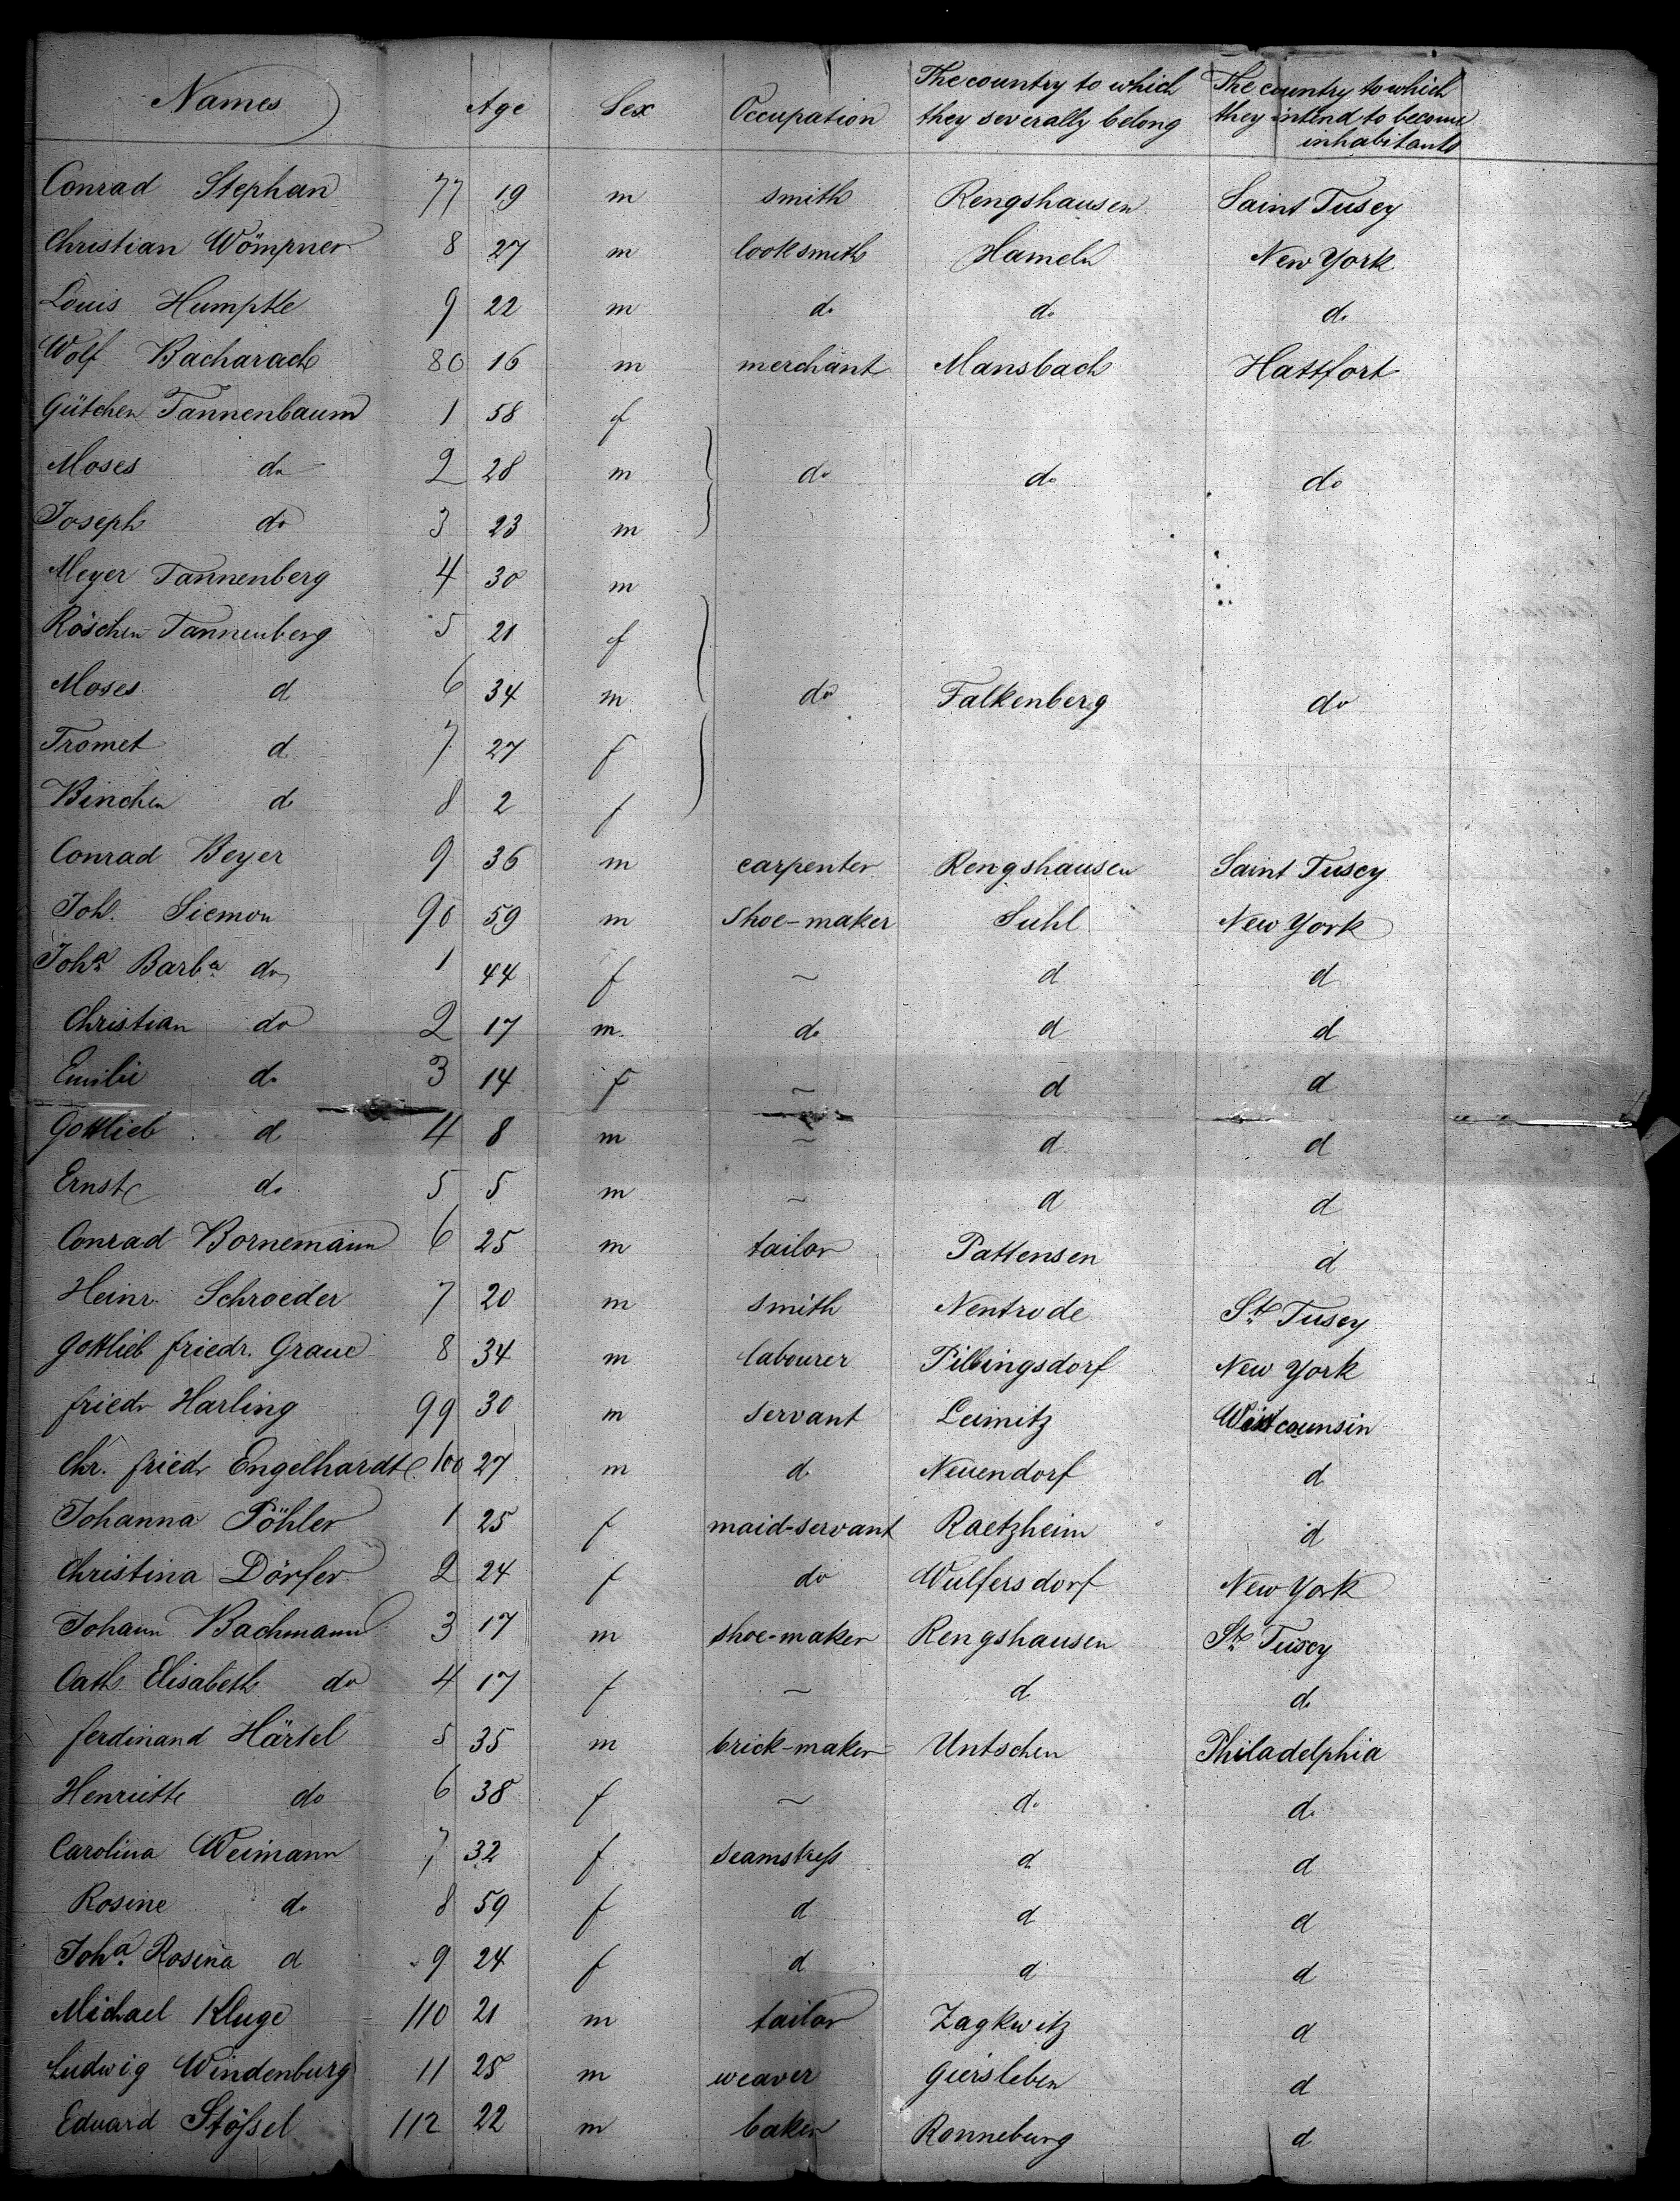 Names Age Sex Occupation The country to which they severally belong The country to which they intend to become inhabitants
Conrad Stephan 77 19 m smith Rengshausen Saint Tusey
Christian Wömpner 8 27 m looksmith Hameln New York
Louis Humpke 9 22 m do do do
Wolf Bacharach 80 16 m merchant Mansbach Hattfort
Gütchen Tannenbaum 1 58 f
Moses do 2 28 m do do do
Joseph do 3 23 m
Meyer Tannenberg 4 30 m
Röschen Tannenberg 5 21 f
Moses d 6 34 m do Falkenberg do
Tromet d 7 27 f
Binchen d. 8 2 f
Conrad Beyer 9 36 m carpenter Rengshausen Saint Tusey
Joh. Siemon 90 59 m shoe-maker Suhl New York
Joha Barba do 1 44 f ~ d d
Christian do 2 17 m do d d
Emilie do 3 14 f ~ d d
Gottlieb d 4 8 m ~ d d
Ernst do 5 5 m ~ d d
Conrad Bornemann 6 25 m tailor Pattensen d
Heinr. Schroeder 7 20 m smith Nentrode St Tusey
Gottlieb friedr. Graue 8 34 m labourer Pillingsdorf New York
friedr Harling 99 30 m servant Leimitz Wistcounsin
Chr. friedr Engelhardt 100 27 m d. Neuendorf d
Johanna Pöhler 1 25 f maid-servant Raetzheim d
Christina Dörfer 2 24 f do Wulfersdorf New York
Johann Bachmann 3 17 m shoe-maker Rengshausen St Tusey
Cath Elisabeth do 4 17 f ~ d d.
ferdinand Härtel 5 35 m brick-maker Untschen Philadelphia
Henriette do 6 38 f ~ d. d.
Carolina Weimann 7 32 f seamstress d d
Rosine do 8 59 f d d d
Joha Rosena d 9 24 f d d d
Michael Kluge 110 21 m tailor Zagkwitz d
Ludwig Windenburg 11 25 m weaver Giersleben d
Eduard Stößel 112 22 m baker Ronneburg d